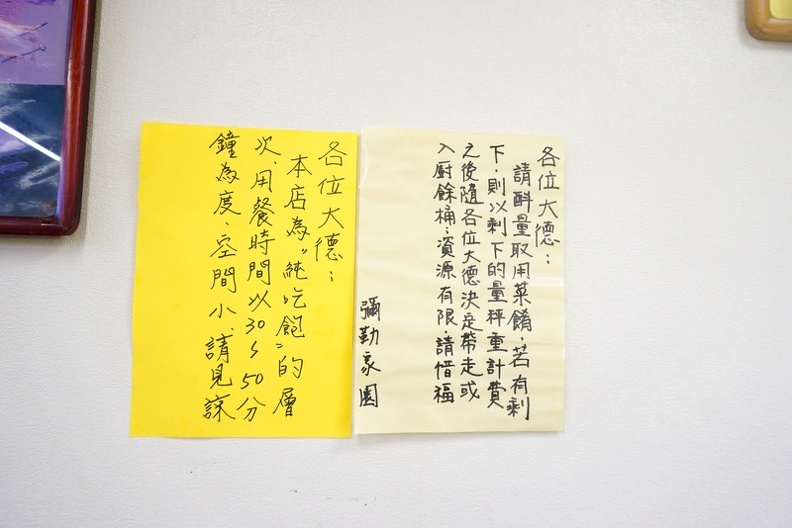 各位大德：
請酙量取用菜餚，若有剩
下，則以剩下的量秤重計費
之後隨各位大德決定帶走或
入廚餘桶，資源有限，請惜福
彌勤家園
各位大德：
本店為"純吃飽"的層
次，用餐時間以30~50分
鐘為度，空間小，請見諒